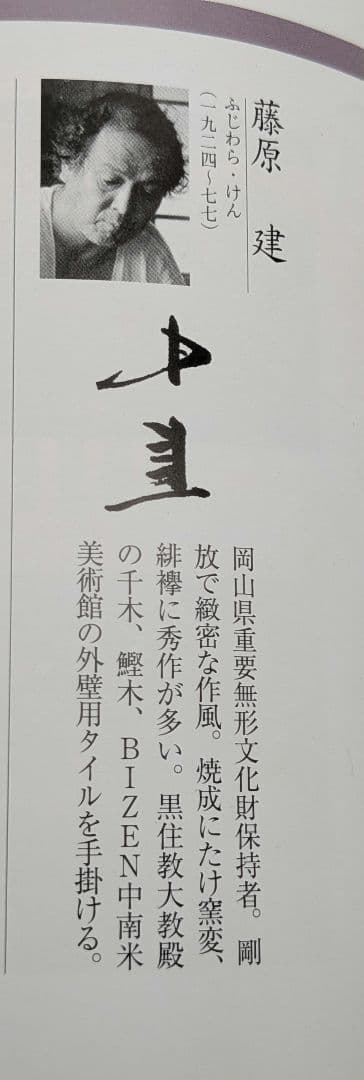 藤原 建
ふじわら・けん
（一九二四〜七七）
岡山県重要無形文化財保持者。剛
放で緻密な作風。焼成にたけ窯変、
緋襷に秀作が多い。黒住教大教殿
の千木、鰹木、BIZEN中南米
美術館の外壁用タイルを手掛ける。